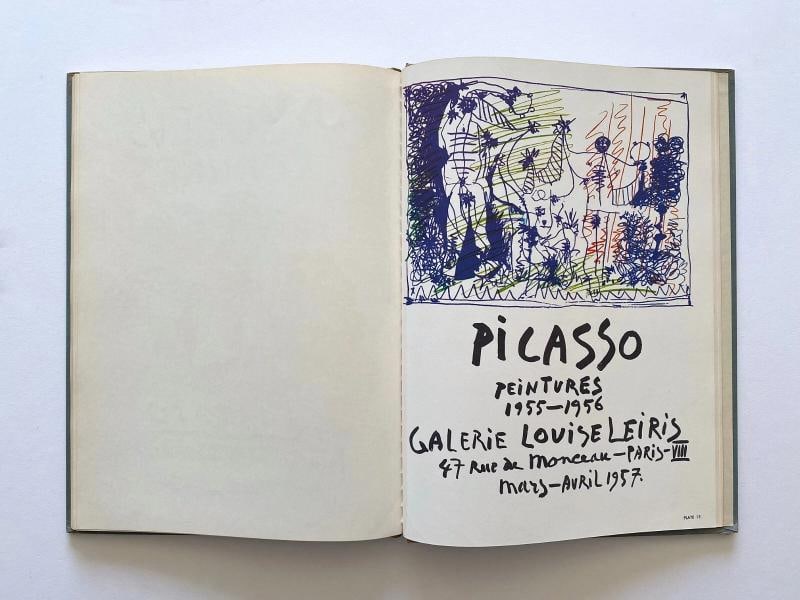 PiCASSO
PEINTURES
1955–1956
GALERIE LOUISE LEIRIS
47 Rue de Monceau – PARIS – VIII
Mars – AVRIL 1957.
PLATE 13